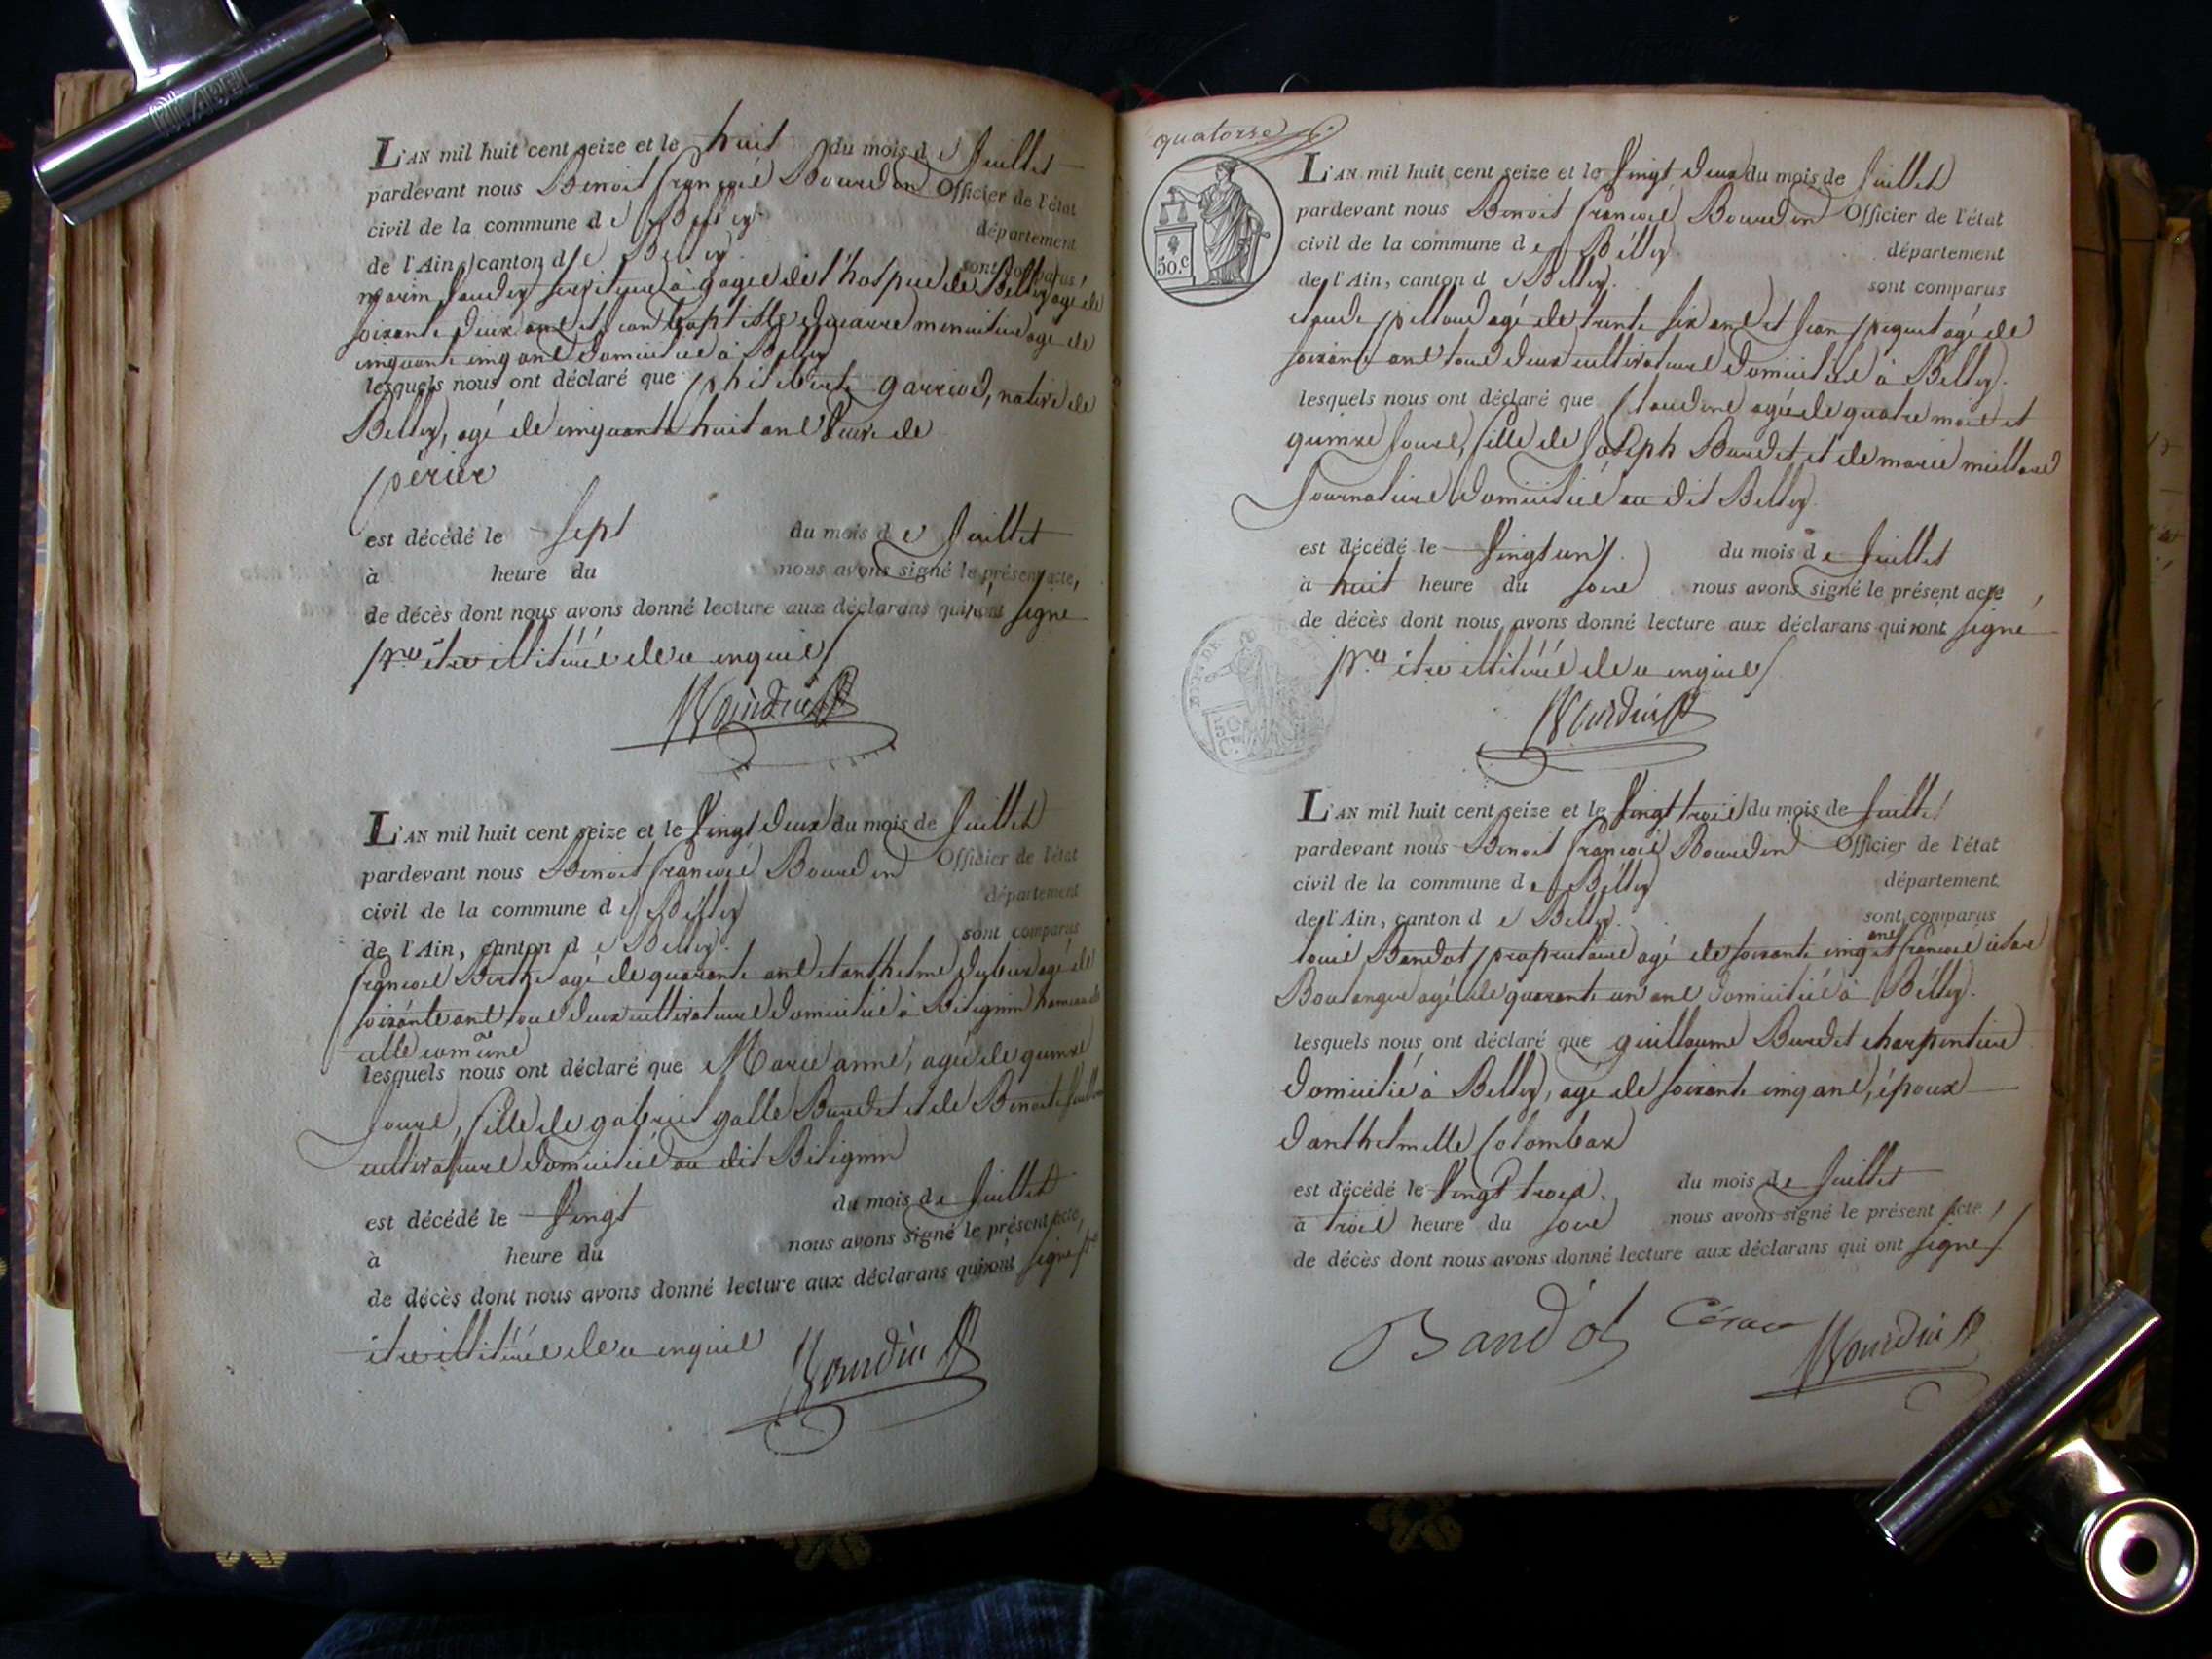 L'AN mil huit cent seize et le huit du mois de Juillet
pardevant nous Benoit françois Bourdin Officier de l'état
civil de la commune de Belley département
de l'Ain, canton de Belley sont comparus
à gages de l'hospice de Belley agé de
soixante deux ans et jean Baptiste menuisier agé de
cinquante cinq ans domiciliés à Belley
lesquels nous ont déclaré que philiberte garriod, native de
Belley, agé de cinquante huit ans veuve de
périer
est décédé le sept du mois de Juillet
à heure du nous avons signé le présent acte,
de décès dont nous avons donné lecture aux déclarans qui n'ont signé
pr. être illitérés de ce enquis
Bourdin
L'AN mil huit cent seize et le vingt deux du mois de Juillet
pardevant nous Benoit françois Bourdin Officier de l'état
civil de la commune de Belley département
de l'Ain, canton de Belley. sont comparus
françois Berthe agé de quarante ans et anthelme dubieux agé de
soixante ans tous deux cultivateurs domiciliés à Bitignin hameau de
cette comune
lesquels nous ont déclaré que Marie anne, agée de quinze
jours, fille de gabriel galle Burdet et de Benoite
cultivateurs domiciliés au dit Bitignin
est décédé le vingt du mois de Juillet
à heure du nous avons signé le présent acte,
de décès dont nous avons donné lecture aux déclarans qui n'ont signé pr.
être illitérés de ce enquis
Bourdin
quatorze
50.c
L'AN mil huit cent seize et le vingt deux du mois de Juillet
pardevant nous Benoit françois Bourdin Officier de l'état
civil de la commune de Belley département
de l'Ain, canton de Belley. sont comparus
claude pilloud agé de trente six ans et jean peguet agé de
soixante ans tous deux cultivateurs domiciliés à Belley.
lesquels nous ont déclaré que Claudine agée de quatre mois et
quinze jours, fille de Joseph Burdet et de marie millard
Journaliers domiciliés au dit Belley.
est décédé le vingt un. du mois de Juillet
à huit heure du soir nous avons signé le présent acte
de décès dont nous avons donné lecture aux déclarans qui n'ont signé
pr. être illitérés de ce enquis
50 C.
Bourdin
L'AN mil huit cent seize et le vingt trois du mois de Juillet
pardevant nous Benoit françois Bourdin Officier de l'état
civil de la commune de Belley département
de l'Ain, canton de Belley. sont comparus
louis Bandot proprietaire agé de soixante cinq ans et françois césar
Boulanger agé de quarante un ans domiciliés à Belley.
lesquels nous ont déclaré que guillaume Burdet charpentier
domicilié à Belley, agé de soixante cinq ans, époux
d'anthelmette Colombax
est décédé le vingt trois. du mois de Juillet
à trois heure du soir nous avons signé le présent acte,
de décès dont nous avons donné lecture aux déclarans qui ont signé
Bandot César Bourdin